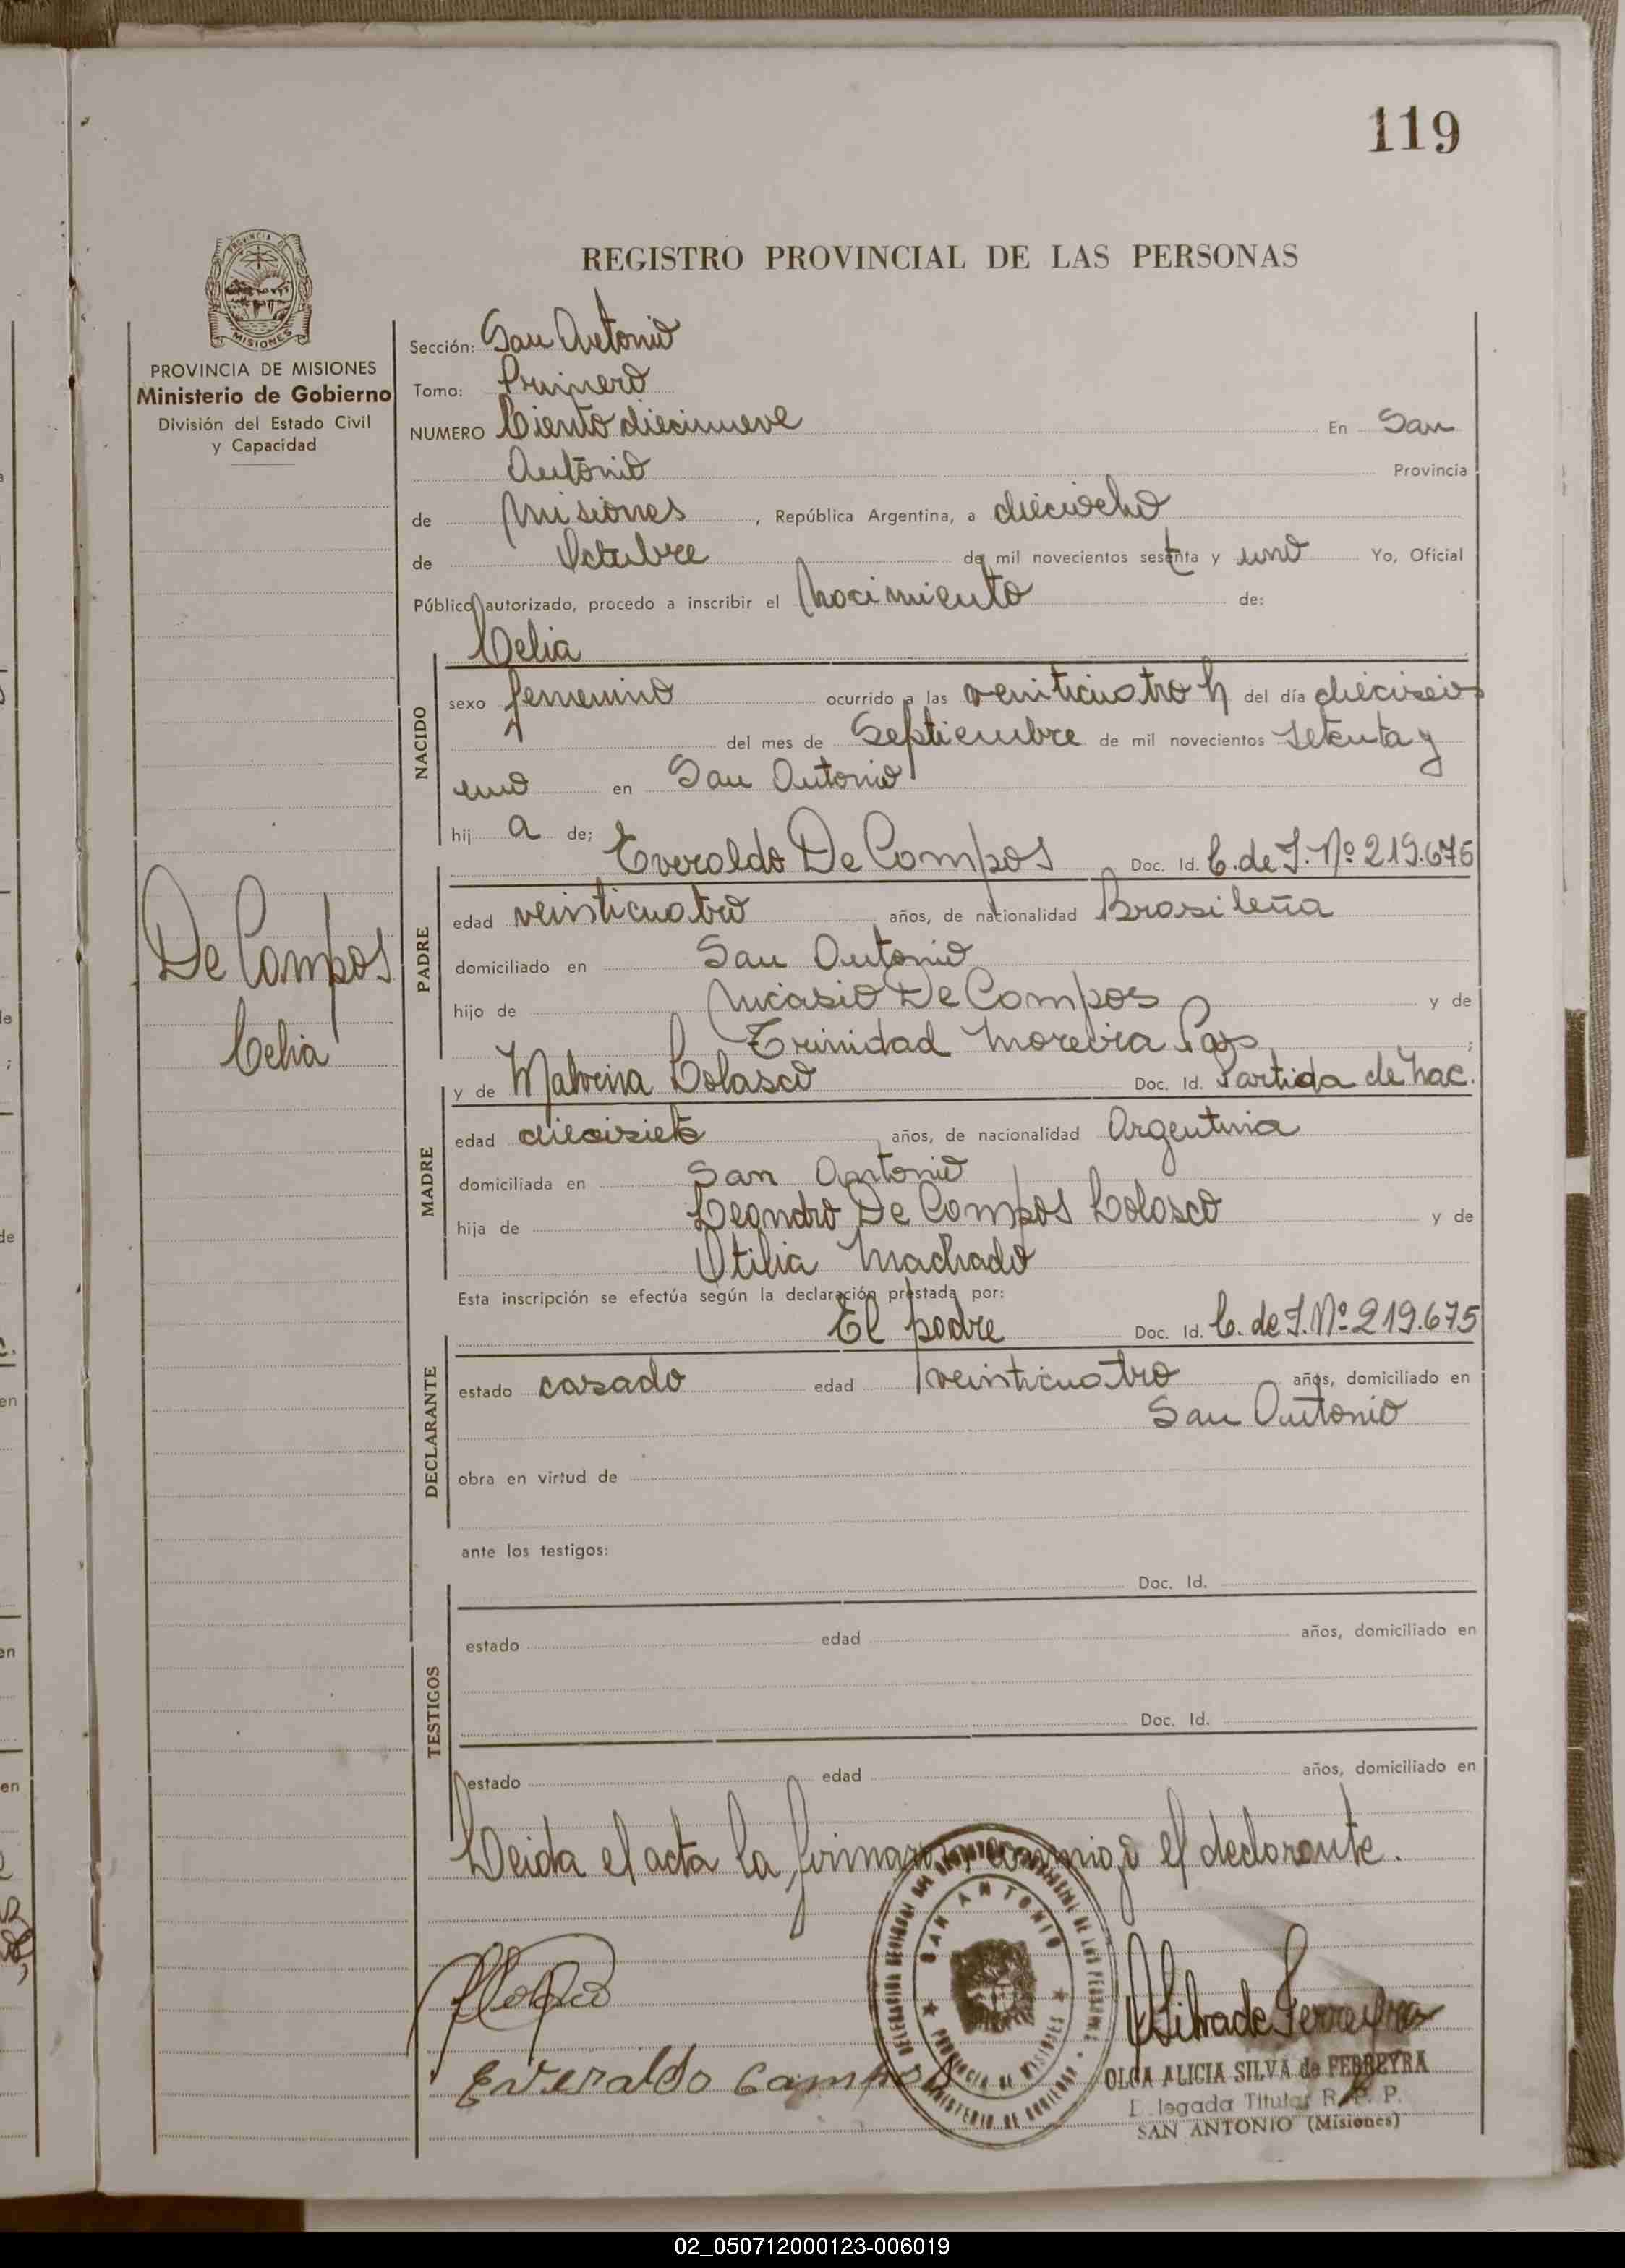 119
REGISTRO PROVINCIAL DE LAS PERSONAS
PROVINCIA DE
MISIONES
PROVINCIA DE MISIONES
Ministerio de Gobierno
División del Estado Civil
y Capacidad
De Campos
Celia
Sección: San Antonio
Tomo: Primero
NUMERO Ciento diecinueve En San
Antonio Provincia
de Misiones, República Argentina, a dieciocho
de Octubre de mil novecientos setenta y uno Yo, Oficial
Público autorizado, procedo a inscribir el Nacimiento de:
Celia
NACIDO
sexo femenino ocurrido a las veinticuatro h del día dieciseis
del mes de Septiembre de mil novecientos setenta y
uno en San Antonio
hij a de; Everaldo De Campos Doc. Id. C. de I. Nº 219.675
PADRE
edad veinticuatro años, de nacionalidad Brasileña
domiciliado en San Antonio
hijo de Nicasio De Campos y de
Trinidad Moreira Paz;
y de Malvina Colasco Doc. Id. Partida de Nac.
MADRE
edad diecisiete años, de nacionalidad Argentina
domiciliada en San Antonio
hija de Leandro De Campos Colasco y de
Otilia Machado
Esta inscripción se efectúa según la declaración prestada por:
El padre Doc. Id. C. de I. Nº 219.675
DECLARANTE
estado casado edad veinticuatro años, domiciliado en
San Antonio
obra en virtud de
ante los testigos:
Doc. Id.
TESTIGOS
estado edad años, domiciliado en
Doc. Id.
estado edad años, domiciliado en
Leida el acta la firma conmigo el declarante.
SAN ANTONIO
PROVINCIA DE MISIONES
Everaldo Campos
ASilva de Ferreyra
OLGA ALICIA SILVA de FERREYRA
Delegada Titular R. P. P.
SAN ANTONIO (Misiones)
02_050712000123-006019